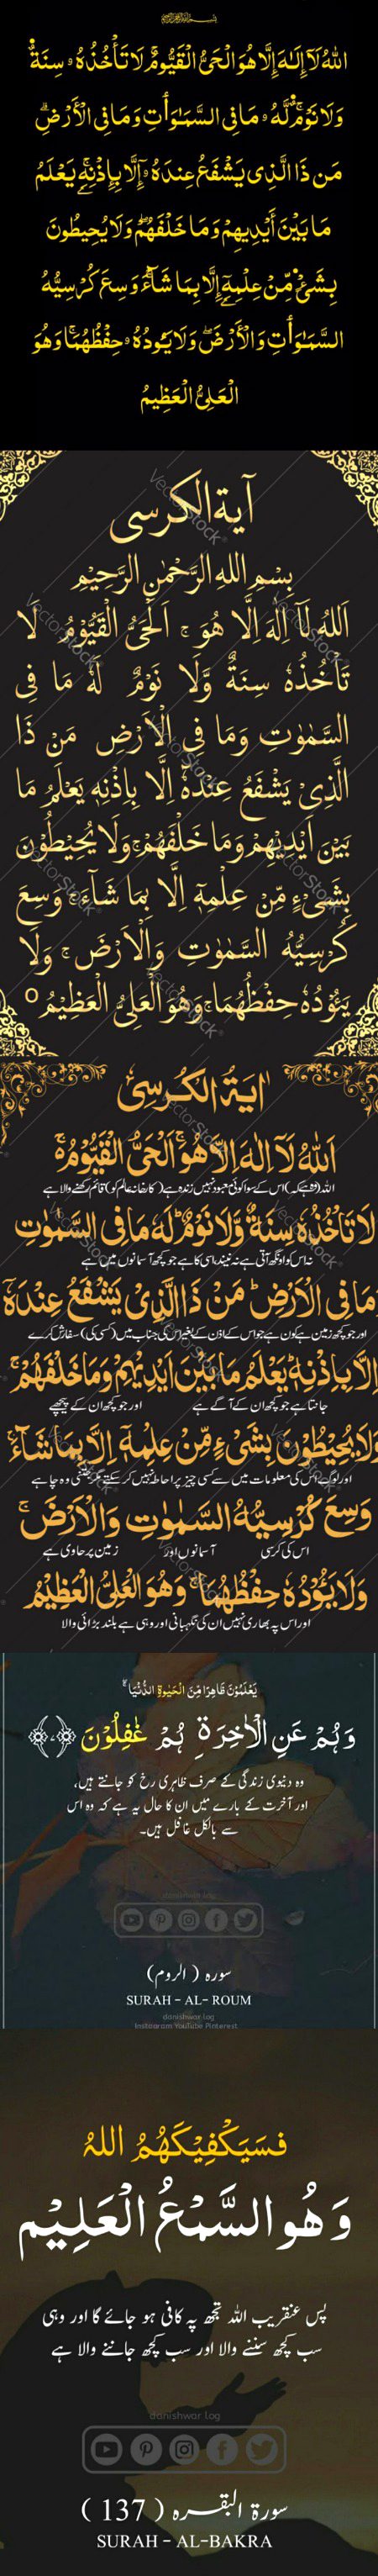 بسم الله الرحمن الرحيم
اللَّهُ لَآ إِلَـٰهَ إِلَّا هُوَ الْحَىُّ الْقَيُّومُ لَا تَأْخُذُهُۥ سِنَةٌ
وَلَا نَوْمٌ لَّهُۥ مَا فِى السَّمَـٰوَٰتِ وَمَا فِى الْأَرْضِ
مَن ذَا الَّذِى يَشْفَعُ عِندَهُۥٓ إِلَّا بِإِذْنِهِۦ يَعْلَمُ
مَا بَيْنَ أَيْدِيهِمْ وَمَا خَلْفَهُمْ وَلَا يُحِيطُونَ
بِشَىْءٍ مِّنْ عِلْمِهِۦٓ إِلَّا بِمَا شَآءَ وَسِعَ كُرْسِيُّهُ
السَّمَـٰوَٰتِ وَالْأَرْضَ وَلَا يَـُٔودُهُۥ حِفْظُهُمَا وَهُوَ
الْعَلِىُّ الْعَظِيمُ
آية الكرسى
بسم الله الرحمن الرحيم
اَللهُ لَآ اِلٰهَ اِلَّا هُوَ ۚ اَلْحَىُّ الْقَيُّوْمُ لَا
تَاْخُذُهٗ سِنَةٌ وَّلَا نَوْمٌ لَهٗ مَا فِى
السَّمٰوٰتِ وَمَا فِى الْاَرْضِ مَنْ ذَا
الَّذِىْ يَشْفَعُ عِنْدَهٗ اِلَّا بِاِذْنِهٖ يَعْلَمُ مَا
بَيْنَ اَيْدِيْهِمْ وَمَا خَلْفَهُمْ ۚ وَلَا يُحِيْطُوْنَ
بِشَىْءٍ مِّنْ عِلْمِهٖ اِلَّا بِمَا شَآءَ ۚ وَسِعَ
كُرْسِيُّهُ السَّمٰوٰتِ وَالْاَرْضَ ۚ وَلَا
يَئُوْدُهٗ حِفْظُهُمَا ۚ وَهُوَ الْعَلِىُّ الْعَظِيْمُ
VectorStock
اٰيَةُ الْكُرْسِىْ
اَللّٰهُ لَآ اِلٰهَ اِلَّا هُوَ ۚ اَلْحَىُّ الْقَيُّوْمُ
اس کے سوا کوئی معبود نہیں زندہ ہے (کارخانہ عالم کو) قائم رکھنے والا ہے
لَا تَاْخُذُهٗ سِنَةٌ وَّلَا نَوْمٌ لَهٗ مَا فِى السَّمٰوٰتِ
نہ اس کو اونگھ آتی ہے نہ نیند اسی کا ہے جو کچھ آسمانوں میں ہے
وَمَا فِى الْاَرْضِ مَنْ ذَا الَّذِىْ يَشْفَعُ عِنْدَهٗ
اور جو کچھ زمین ہے کون ہے جو اس کے اذن کے بغیر اس کی جناب میں (کسی کی) سفارش کرے
اِلَّا بِاِذْنِهٖ يَعْلَمُ مَا بَيْنَ اَيْدِيْهِمْ وَمَا خَلْفَهُمْ ۚ
جانتا ہے جو کچھ ان کے آگے ہے اور جو کچھ ان کے پیچھے
وَلَا يُحِيْطُوْنَ بِشَىْءٍ مِّنْ عِلْمِهٖ اِلَّا بِمَا شَآءَ
اور لوگ اس کی معلومات میں سے کسی چیز پر احاطہ نہیں کر سکتے مگر جتنی وہ چاہے
وَسِعَ كُرْسِيُّهُ السَّمٰوٰتِ وَالْاَرْضَ ۚ
اس کی کرسی آسمانوں اور زمین پر حاوی ہے
وَلَا يَئُوْدُهٗ حِفْظُهُمَا ۚ وَهُوَ الْعَلِىُّ الْعَظِيْمُ
اور اس پہ بھاری نہیں ان کی نگہبانی اور وہی ہے بلند بڑائی والا
يَعْلَمُوْنَ ظَاهِرًا مِّنَ الْحَيٰوةِ الدُّنْيَا
وَهُمْ عَنِ الْاٰخِرَةِ هُمْ غٰفِلُوْنَ ﴿٧﴾
وہ دنیوی زندگی کے صرف ظاہری رخ کو جانتے ہیں،
اور آخرت کے بارے میں ان کا حال یہ ہے کہ وہ اس
سے بالکل غافل ہیں۔
danishwar log
سورہ ( الروم )
SURAH - AL- ROUM
danishwar.log
Instagram YouTube Pinterest
فَسَيَكْفِيْكَهُمُ اللهُ
وَهُوَ السَّمِيْعُ الْعَلِيْمُ
پس عنقریب اللہ تجھ پہ کافی ہو جائے گا اور وہی
سب کچھ سننے والا اور سب کچھ جاننے والا ہے
danishwar log
سورة البقرہ ( 137 )
SURAH - AL-BAKRA